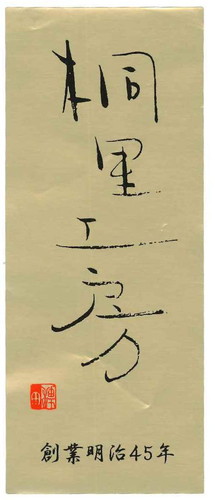 桐里工房
創業明治45年